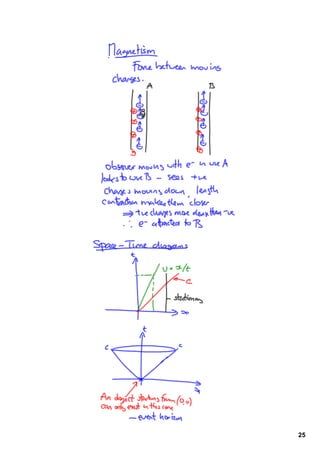 Magnetism
Force between moving
charges.
A B
observer moving with e⁻ in wire A
looks to wire B – sees +ve
charges moving down, length
contraction makes them closer
⇒ +ve charges more dense than -ve
∴ e⁻ attracted to B
Space-Time diagrams
t
v = x/t
c
stationary
x
t
c c
x
An object starting from (0,0)
can only exist in this cone
– event horizon
25